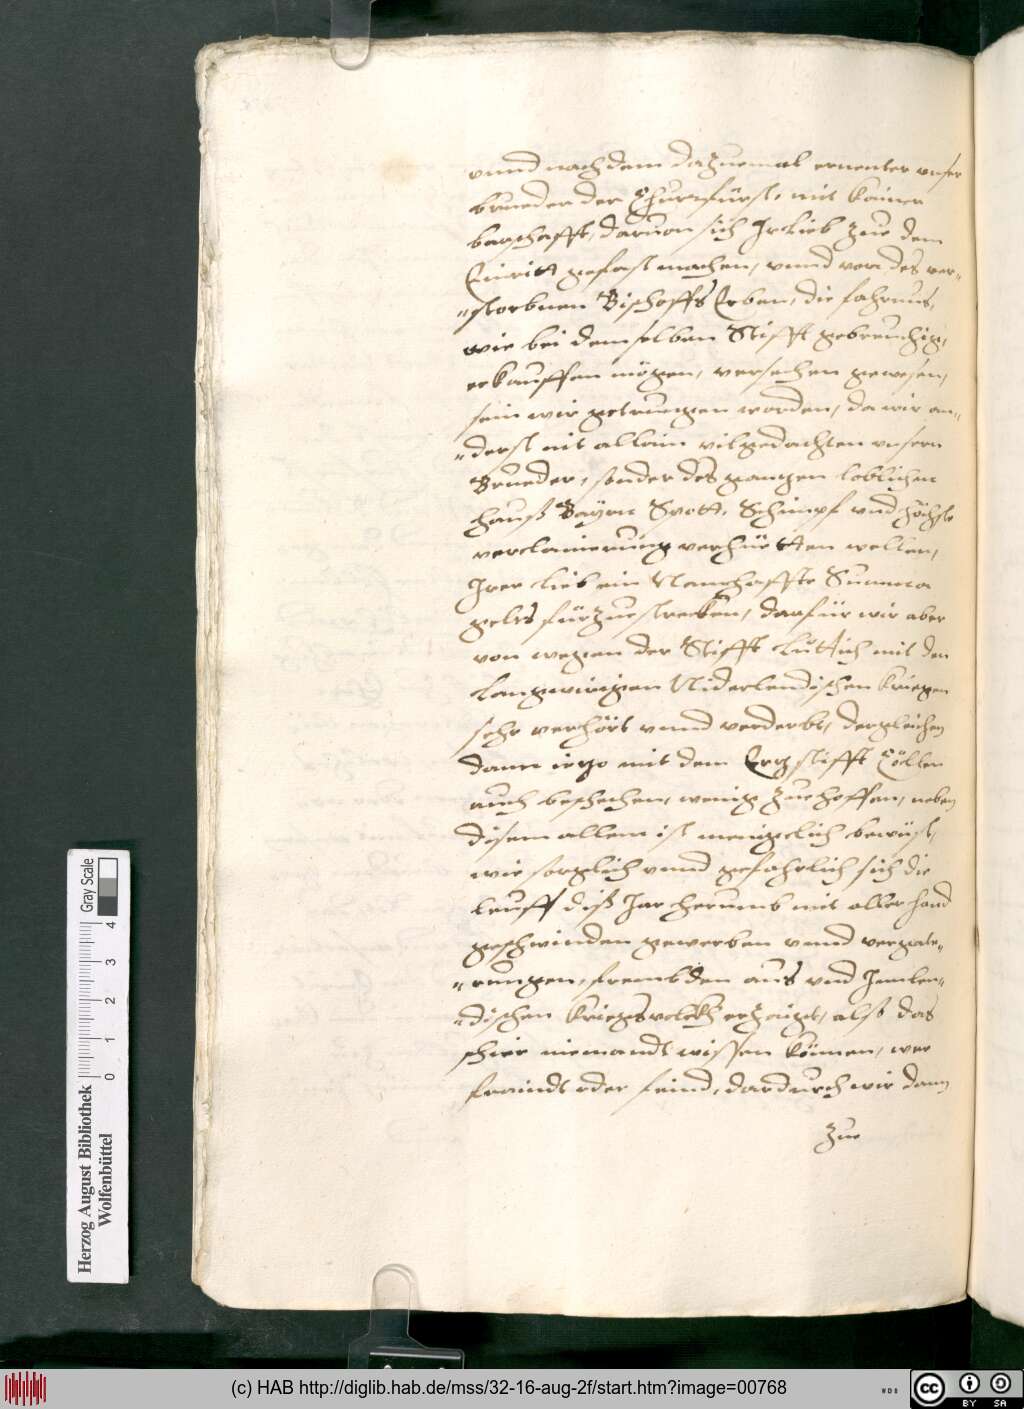 vnnd nach dem dazuemal ernenter vnser
brueder der Churfürst, mit kainer
barschafft, daruon sich Ir Lieb zue dem
Einritt gefast machen, vnnd von des ver„
„storbnen Bischoffs Erben, die fahrnus,
wie bei demselben Stifft gebreuchig,
erkauffen mögen, versechen gewesen,
sein wir getrungen worden, da wir an„
„derst nit allain vilgedachten vnsern
Brueder, sonder des gantzen loblichen
hauß Bayrn Spott, Schimpf vnd höchste
verclainerung verhüetten wellen,
Irer Lieb ein Namhaffte Summa
gelts fürzuestrecken, darfür wir aber
von wegen der Stifft Lüttich mit den
langwirigen Niderlendischen kriegen
sehr verhört vnnd verderbt, dergleichen
dann ietzo mit dem Ertzstifft Cöllen
auch beschechen, wenig zuehoffen, neben
disem allem ist meniglich bewüst,
wie sorglich vnnd gefahrlich sich die
leuff diß Jar herumb mit allerhand
geschwinden gewerben vnnd vergate„
„rungen, frembden aus vnd Innlen„
„dischen kriegsvolckh erzaigt, alß das
schier niemandt wissen können, wer
fraindt oder feind, dardurch wir dann
zue
Herzog August Bibliothek
Wolfenbüttel
0 1 2 3 4
Gray Scale
(c) HAB http://diglib.hab.de/mss/32-16-aug-2f/start.htm?image=00768
WDB
CC BY SA